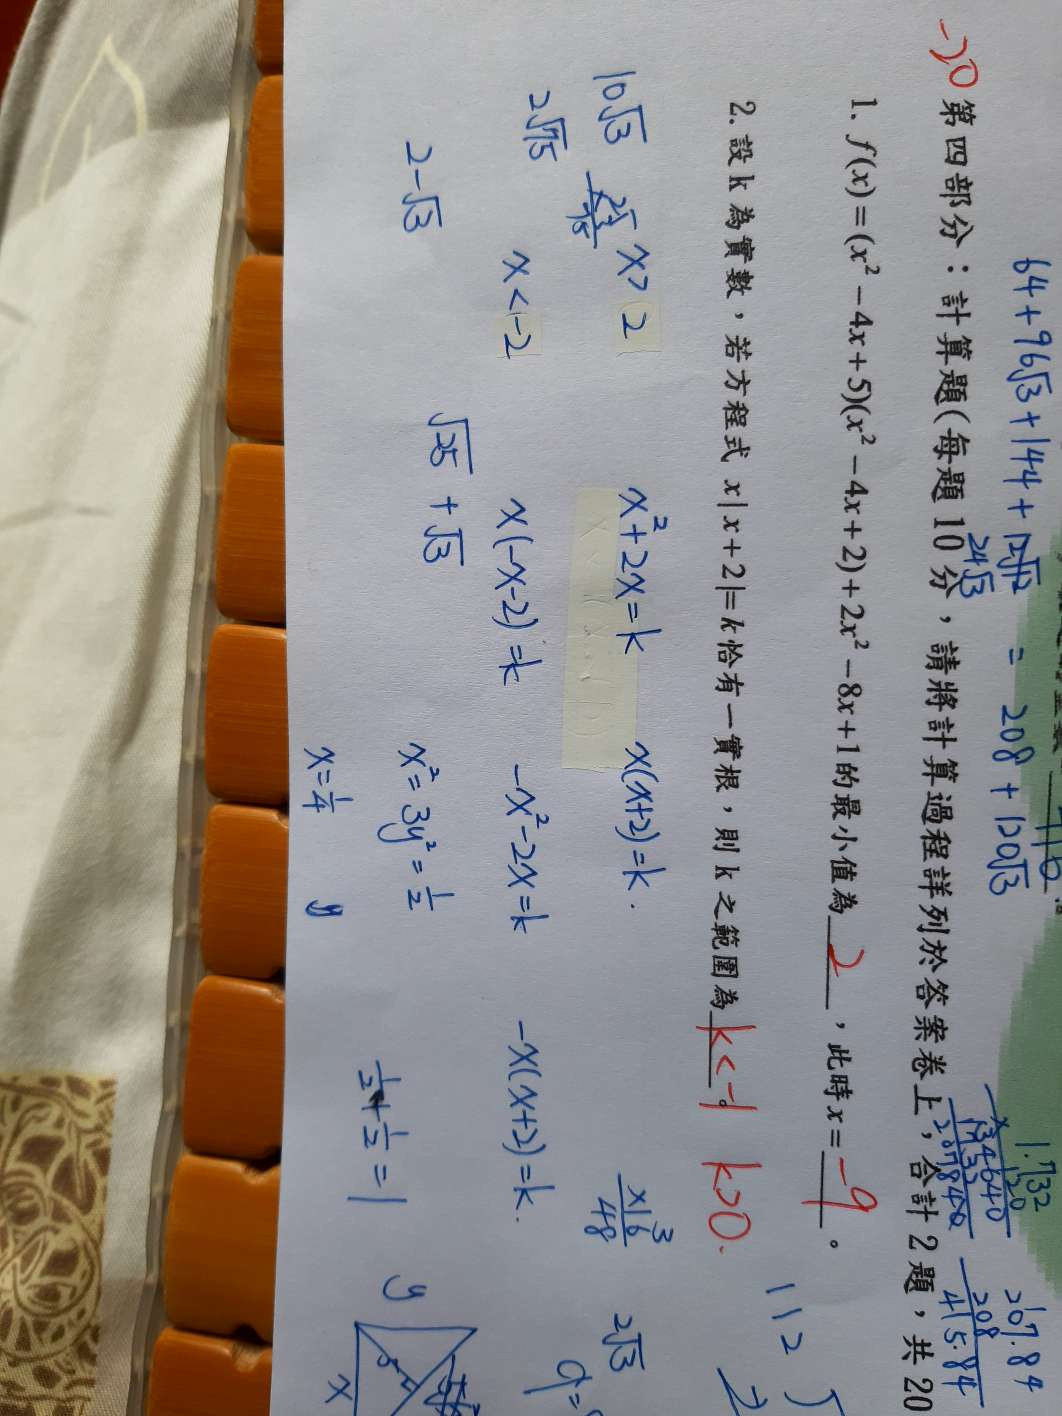 64+96√3+144+12√12 = 208+120√3
24√3
1.732
120
34640
1732
207840
207.84
208
415.84
-20
第四部分：計算題(每題10分，請將計算過程詳列於答案卷上，合計2題，共20
1. f(x)=(x²-4x+5)(x²-4x+2)+2x²-8x+1的最小值為 2 ，此時x= -9 。
2. 設k為實數，若方程式 x|x+2|=k恰有一實根，則k之範圍為 k<-1 k>0 。
112
10√3
x>2
x²+2x=k
x(x+2)=k.
x16
3
48
2√3
2√75
x<-2
x(-x-2)=k
-x²-2x=k
-x(x+2)=k.
2-√3
√25+√3
x²=3y²=1/2
1/2+1/2=1
y
x=1/4
y
x